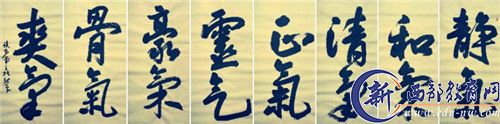 静氣
和氣
清氣
正氣
靈气
豪氣
骨氣
爽氣
新 西部教育网